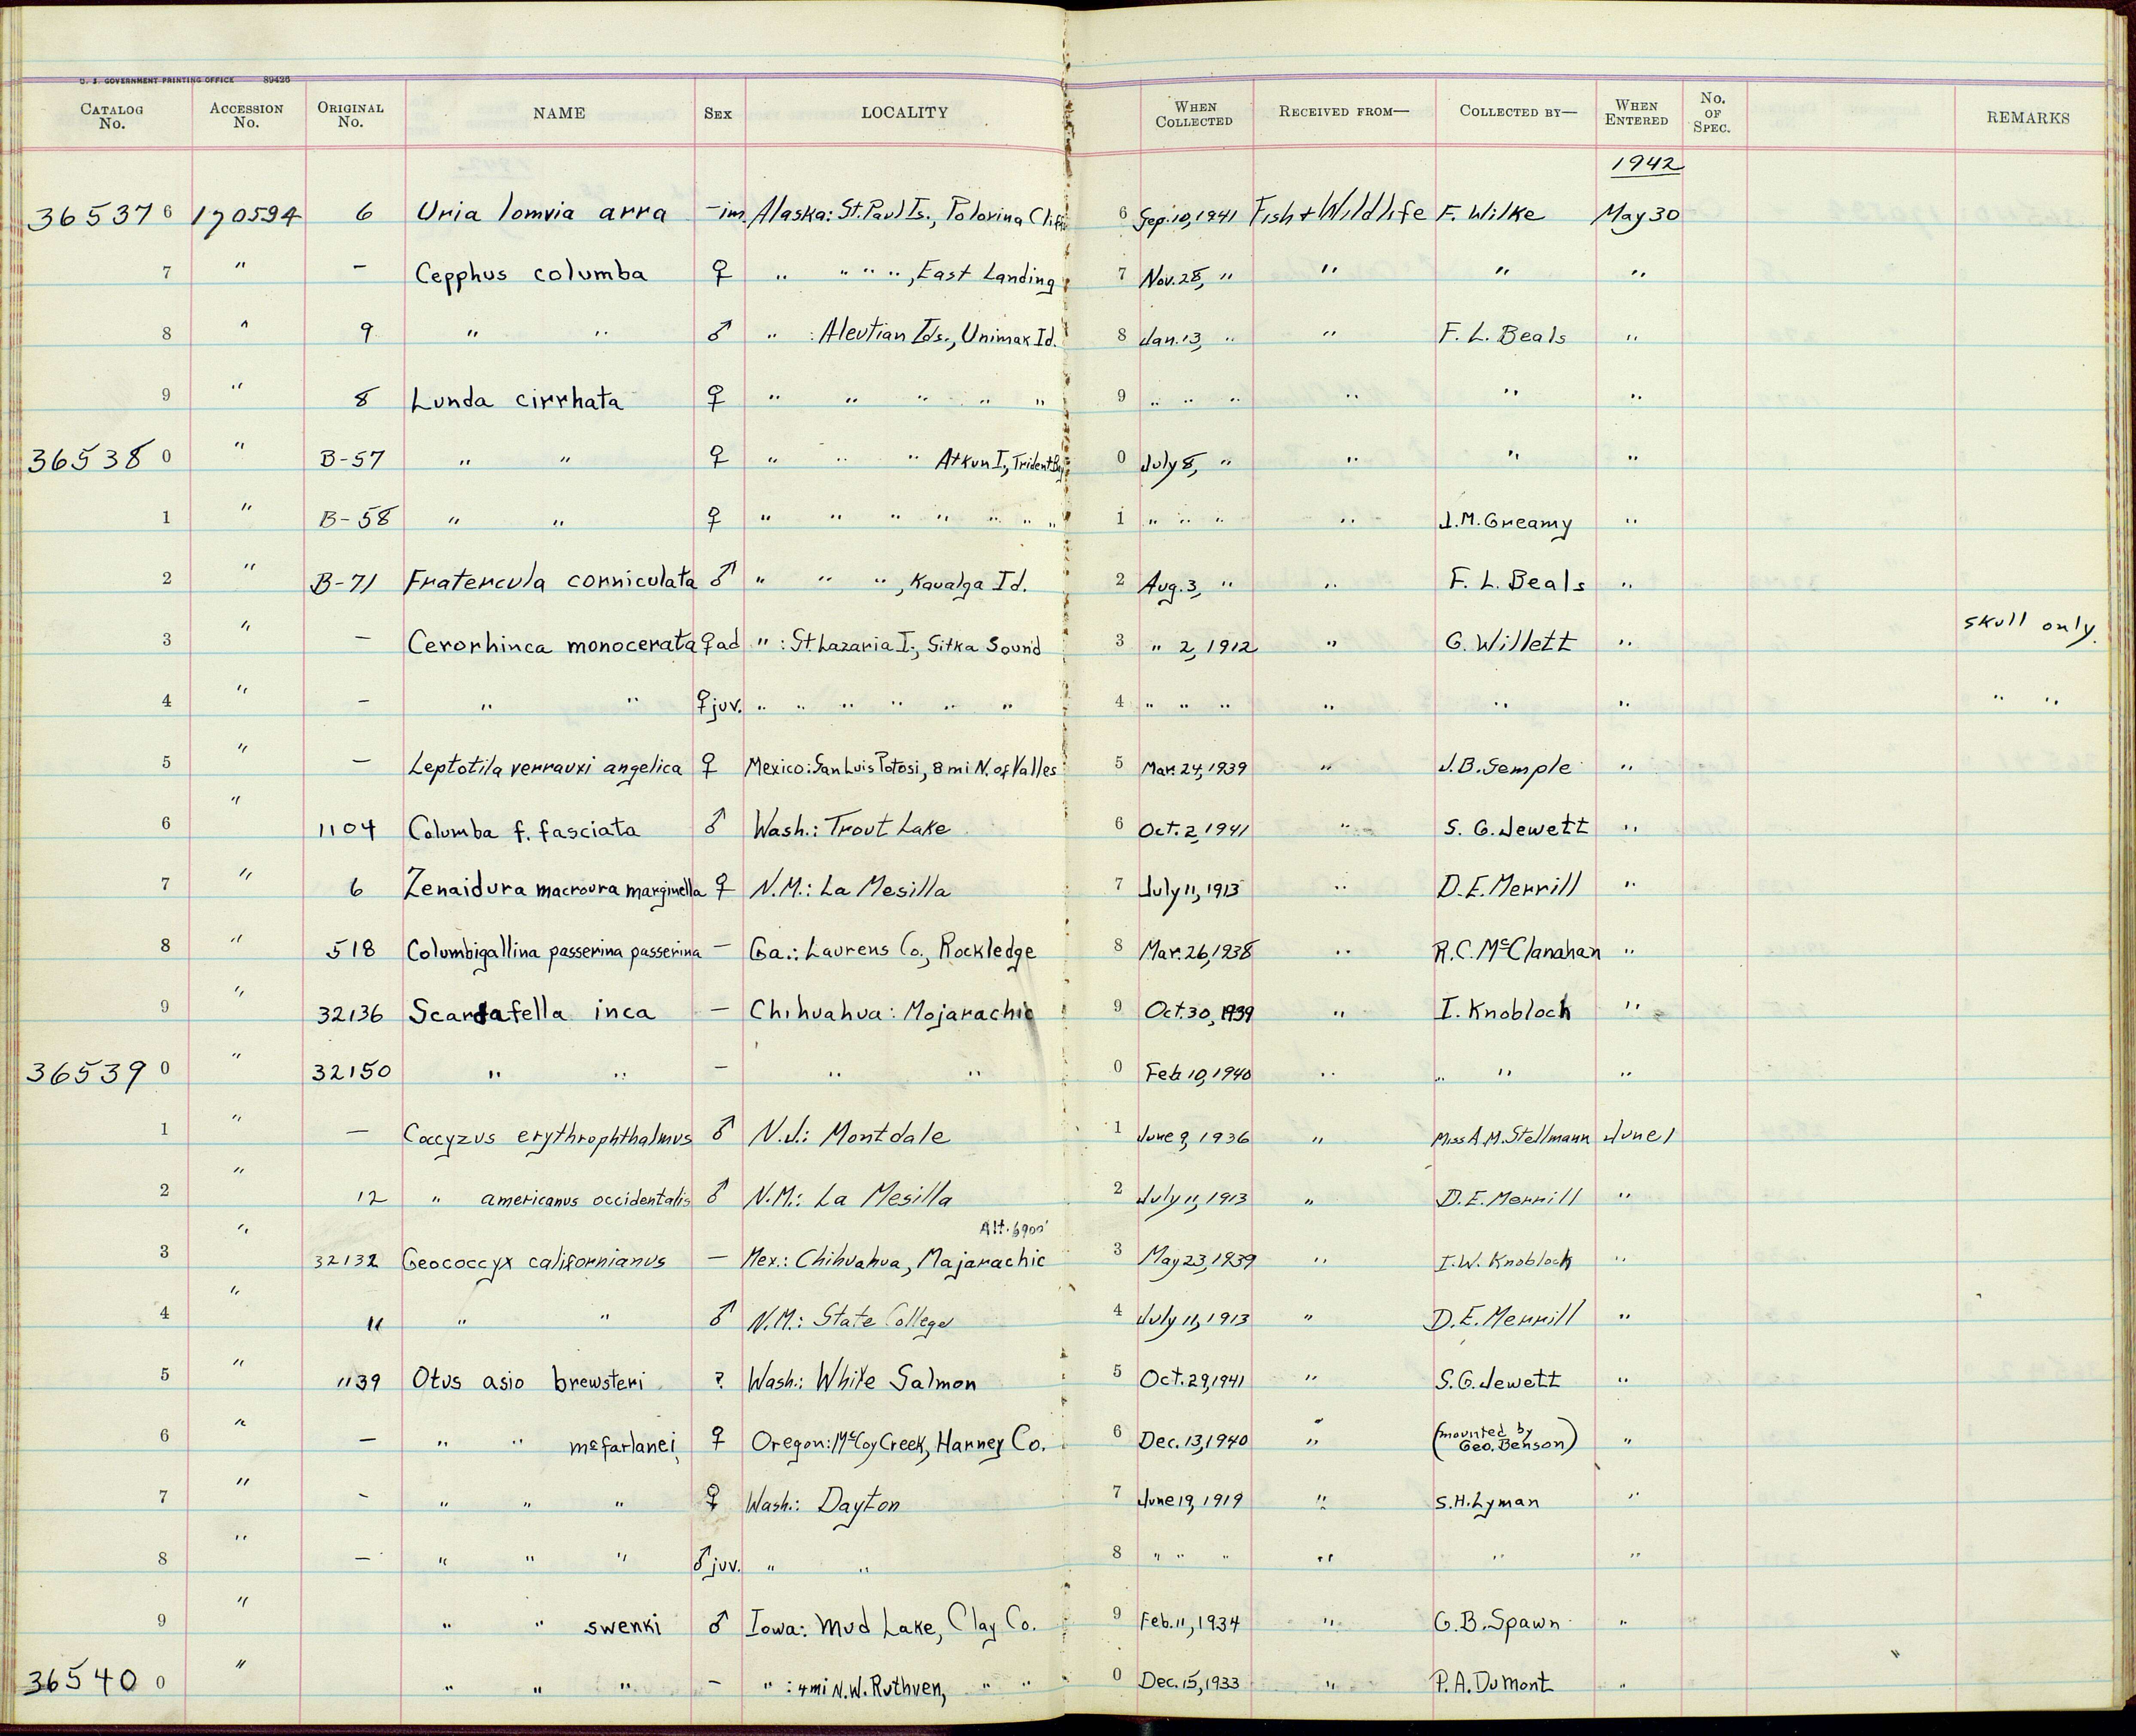 U. S. GOVERNMENT PRINTING OFFICE 89426
CATALOG No. ACCESSION No. ORIGINAL No. NAME SEX LOCALITY WHEN COLLECTED RECEIVED FROM— COLLECTED BY— WHEN ENTERED No. OF SPEC. REMARKS
1942
36537 6 170594 6 Uria lomvia arra - im. Alaska: St. Paul Is., Polovina Cliffs 6 Sep. 10, 1941 Fish & Wildlife F. Wilke May 30
7 " - Cepphus columba ♀ " " " ", East Landing 7 Nov. 28, " " " "
8 " 9 " " ♂ " : Aleutian Ids., Unimak Id. 8 Jan. 13, " " F. L. Beals "
9 " 8 Lunda cirrhata ♀ " " " " " 9 " " " " " "
36538 0 " B-57 " " ♀ " " " Atkun I., Trident Bay 0 July 8, " " " "
1 " B-58 " " ♀ " " " " " " " 1 " " " " J. M. Greamy "
2 " B-71 Fratercula corniculata ♂ " " ", Kavalga Id. 2 Aug. 3, " " F. L. Beals "
3 " - Cerorhinca monocerata ♀ ad " : St. Lazaria I., Sitka Sound 3 " 2, 1912 " G. Willett " skull only.
4 " - " " ♀ juv. " " " " " " 4 " " " " " " " "
5 " - Leptotila verrauxi angelica ♀ Mexico: San Luis Potosi, 8 mi N. of Valles 5 Mar. 24, 1939 " J. B. Semple "
6 " 1104 Columba f. fasciata ♂ Wash.: Trout Lake 6 Oct. 2, 1941 " S. G. Jewett "
7 " 6 Zenaidura macroura marginella ♀ N.M.: La Mesilla 7 July 11, 1913 " D. E. Merrill "
8 " 518 Columbigallina passerina passerina - Ga.: Laurens Co., Rockledge 8 Mar. 26, 1938 " R. C. McClanahan "
9 " 32136 Scardafella inca - Chihuahua: Mojarachic 9 Oct. 30, 1939 " I. Knobloch "
36539 0 " 32150 " " - " " 0 Feb. 10, 1940 " " " "
1 " - Coccyzus erythrophthalmus ♂ N.J.: Montdale 1 June 9, 1936 " Miss A. M. Stellmann June 1
2 " 12 " americanus occidentalis ♂ N.M.: La Mesilla 2 July 11, 1913 " D. E. Merrill "
Alt. 6900'
3 " 32132 Geococcyx californianus - Mex.: Chihuahua, Majarachic 3 May 23, 1939 " I. W. Knobloch "
4 " 11 " " ♂ N.M.: State College 4 July 11, 1913 " D. E. Merrill "
5 " 1139 Otus asio brewsteri ? Wash.: White Salmon 5 Oct. 29, 1941 " S. G. Jewett "
6 " - " " mcfarlanei ♀ Oregon: McCoy Creek, Harney Co. 6 Dec. 13, 1940 " (mounted by Geo. Benson) "
7 " - " " " ♀ Wash.: Dayton 7 June 19, 1919 " S. H. Lyman "
8 " - " " " ♂ juv. " " 8 " " " " " "
9 " " " swenki ♂ Iowa: Mud Lake, Clay Co. 9 Feb. 11, 1934 " G. B. Spawn "
36540 0 " " " " - " : 4 mi N.W. Ruthven, " " 0 Dec. 15, 1933 " P. A. DuMont "